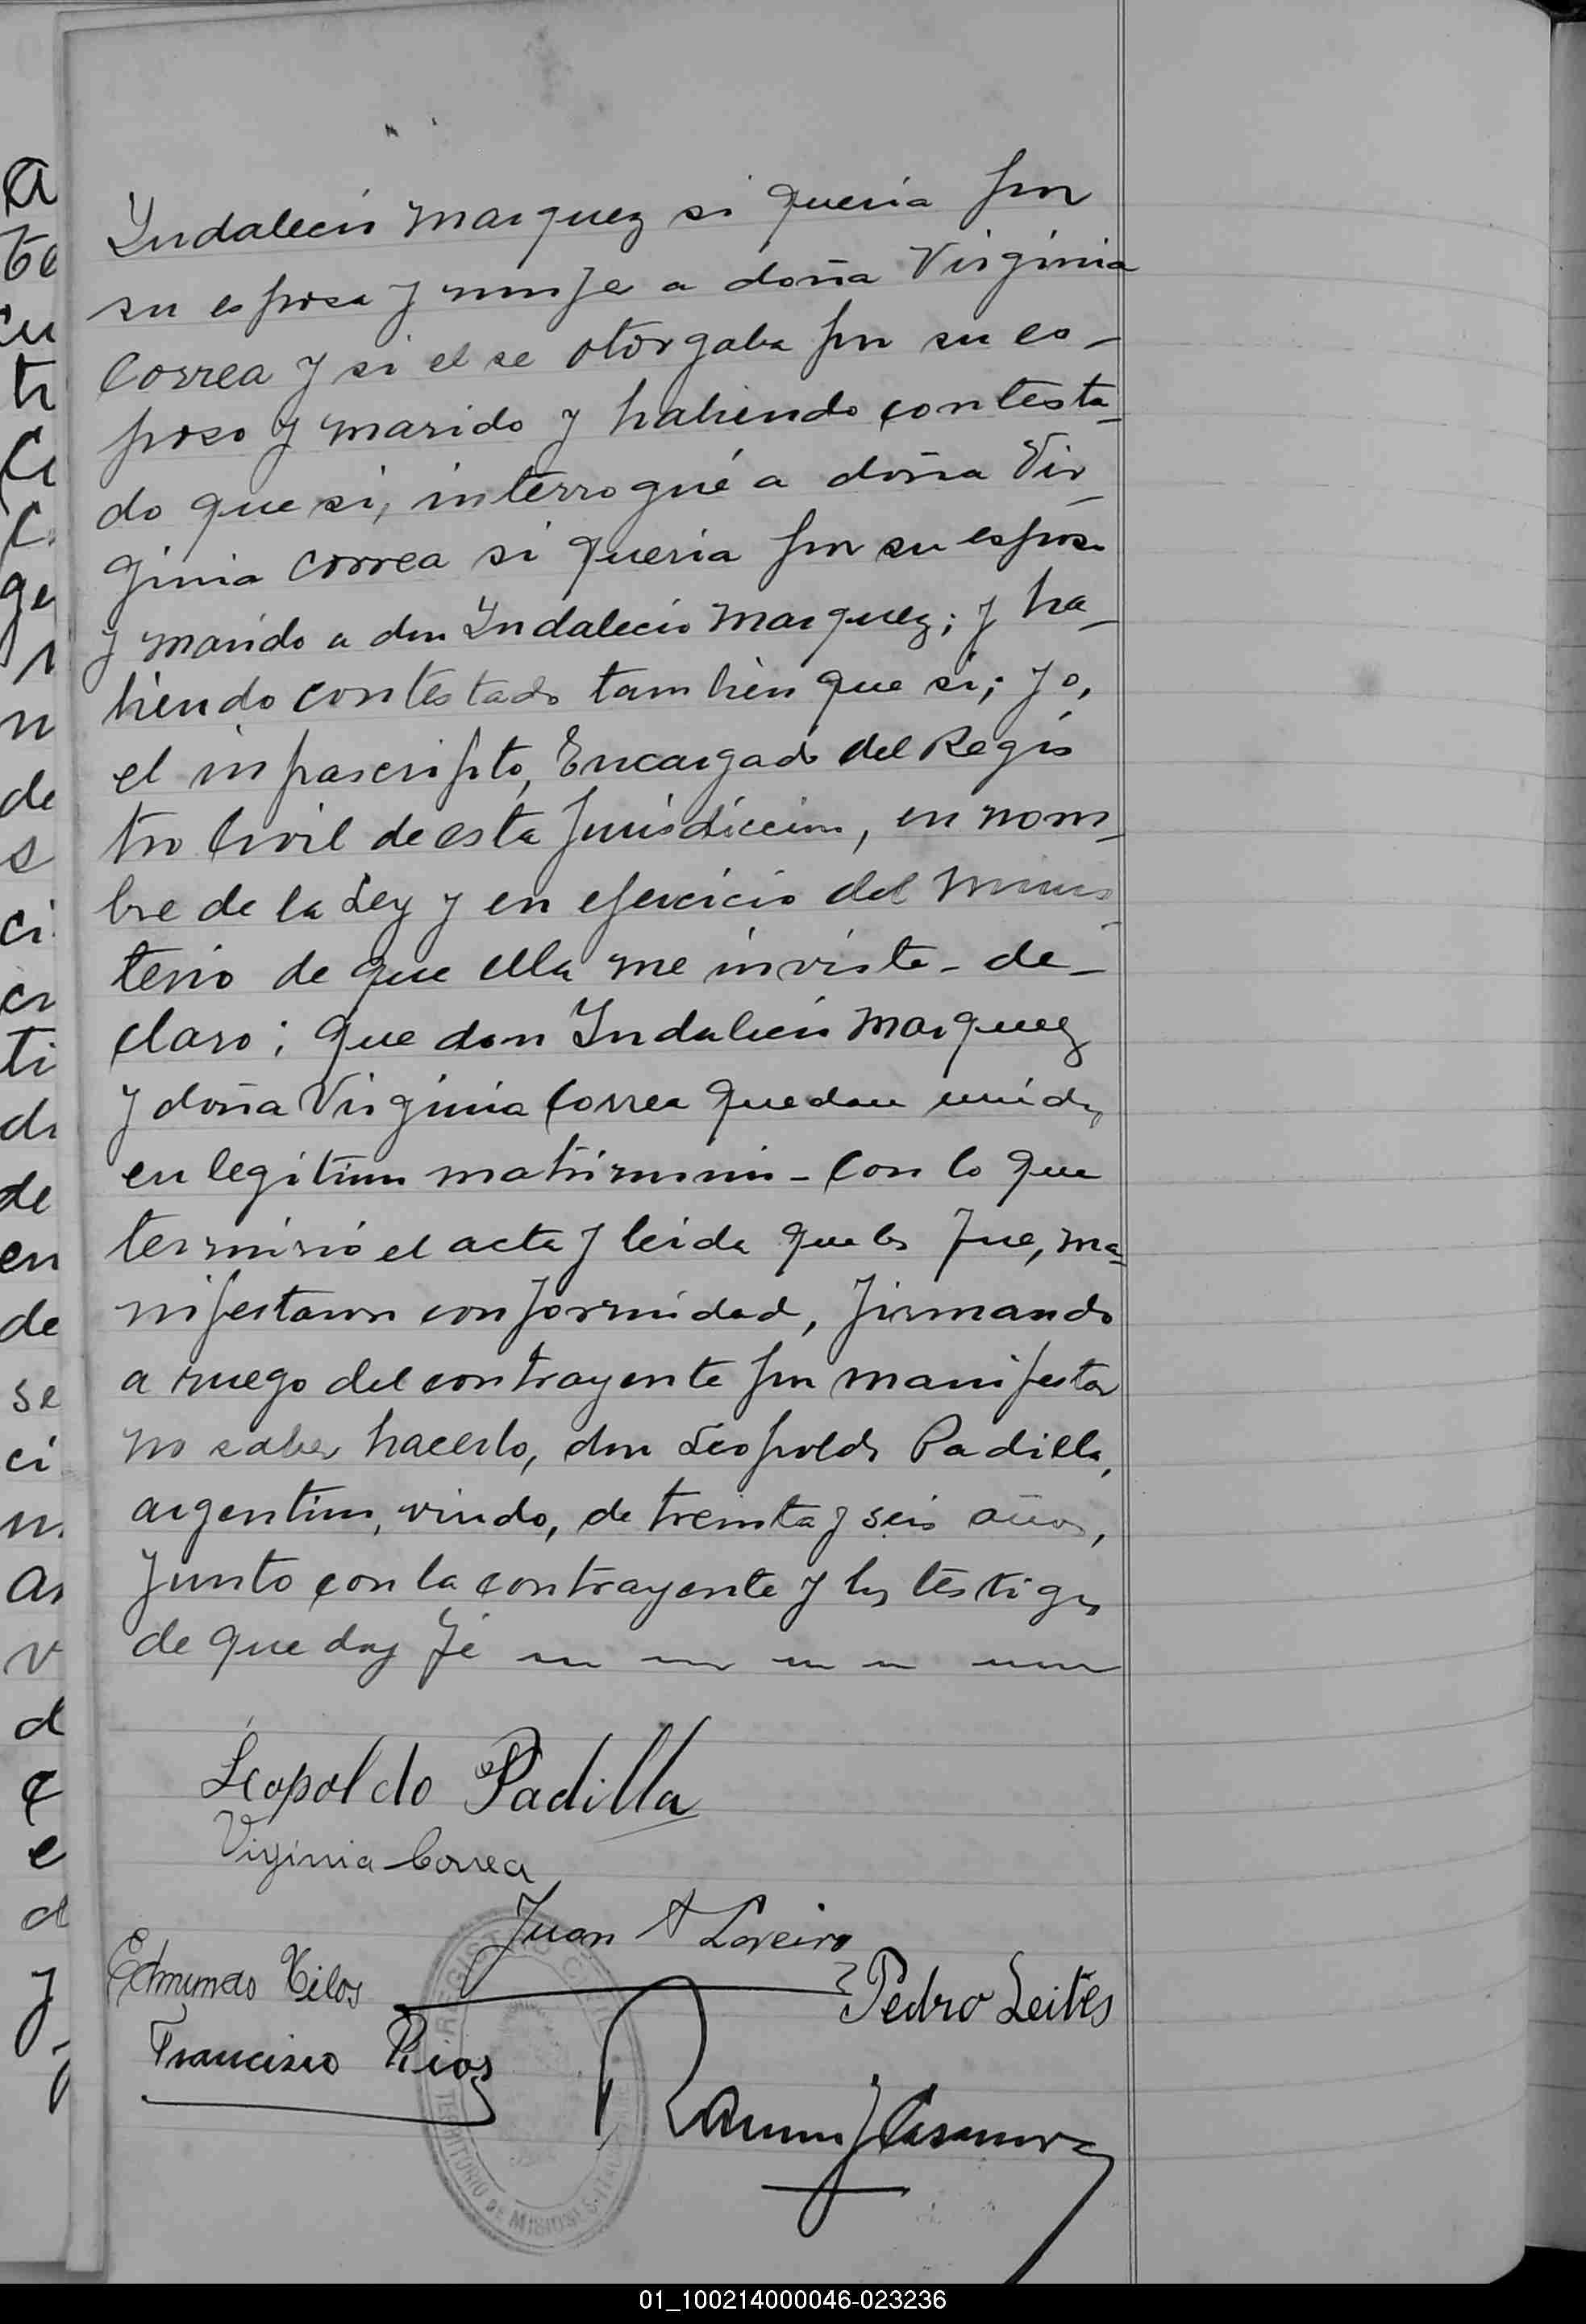 Indalecio Marquez si queria por
su esposa y mujer a doña Virginia
Correa y si el se otorgaba por su es-
poso y marido y habiendo contesta-
do que si, interrogué a doña Vir-
ginia Correa si queria por su esposo
y marido a don Indalecio Marquez; y ha-
biendo contestado tambien que si; yo,
el infrascripto, Encargado del Regis
tro Civil de esta Jurisdiccion, en nom-
bre de la Ley y en ejercicio del minis-
terio de que ella me inviste - de-
claro; que don Indalecio Marquez
y doña Virginia Correa quedan unidos
en legitimo matrimonio - Con lo que
terminó el acta y leida que les fue, ma-
nifestaron conformidad, firmando
a ruego del contrayente por manifestar
no saber hacerlo, don Leopoldo Padilla,
argentino, viudo, de treinta y seis años,
junto con la contrayente y los testigos
de que doy fé
Leopoldo Padilla
Virginia Correa
Juan A Loreiro
Edmundo
Pedro Leites
Francisco Rios
Ramon J Casanova
REGISTRO CIVIL
TERRITORIO DE MISIONES
01_100214000046-023236